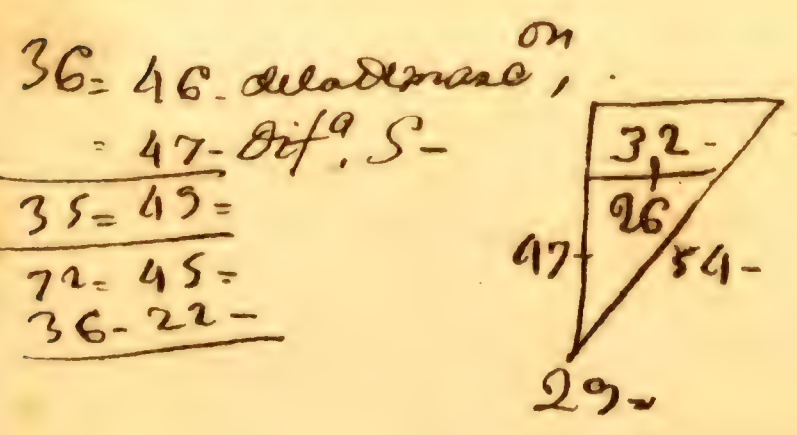 36= 46- dela demarcon,.
= 47- Difa. S-
35= 49=
72= 45=
36- 22-
32-
26
47-
54-
29=